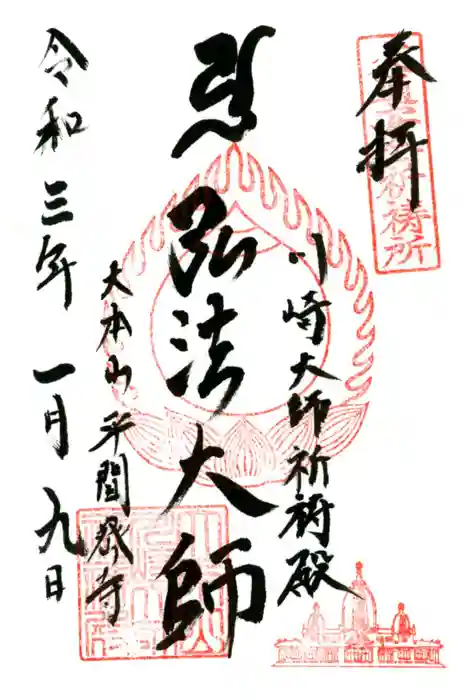 奉拝
川崎大師祈祷殿
弘法大師
大本山 平間寺
令和三年一月九日